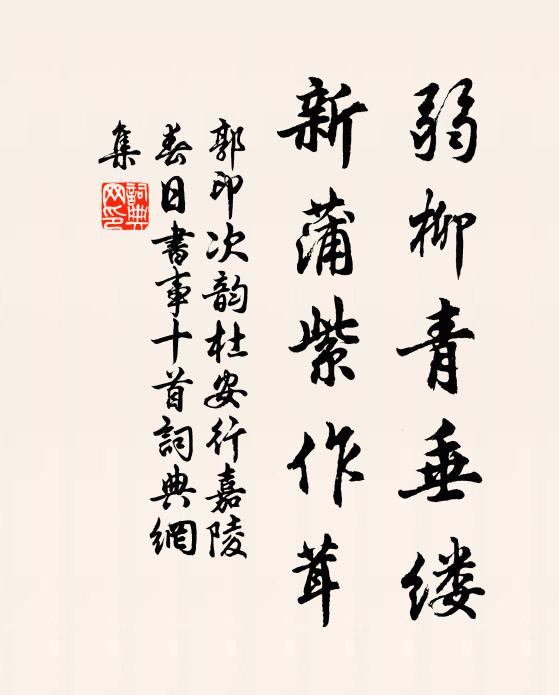 弱柳青垂缕
新蒲紫作茸
郭印次韵杜安行嘉陵
春日书事十首詞典網
集
詞典網印